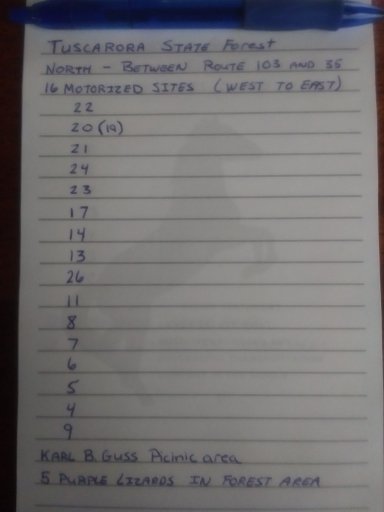 TUSCARORA STATE Forest
NORTH - BETWEEN ROUTE 103 AND 35
16 MOTORIZED SITES (WEST TO EAST)
22
20 (19)
21
24
23
17
14
13
26
11
8
7
6
5
4
9
KARL B. GUSS Picinic area
5 PURPLE LIZARDS IN FOREST AREA